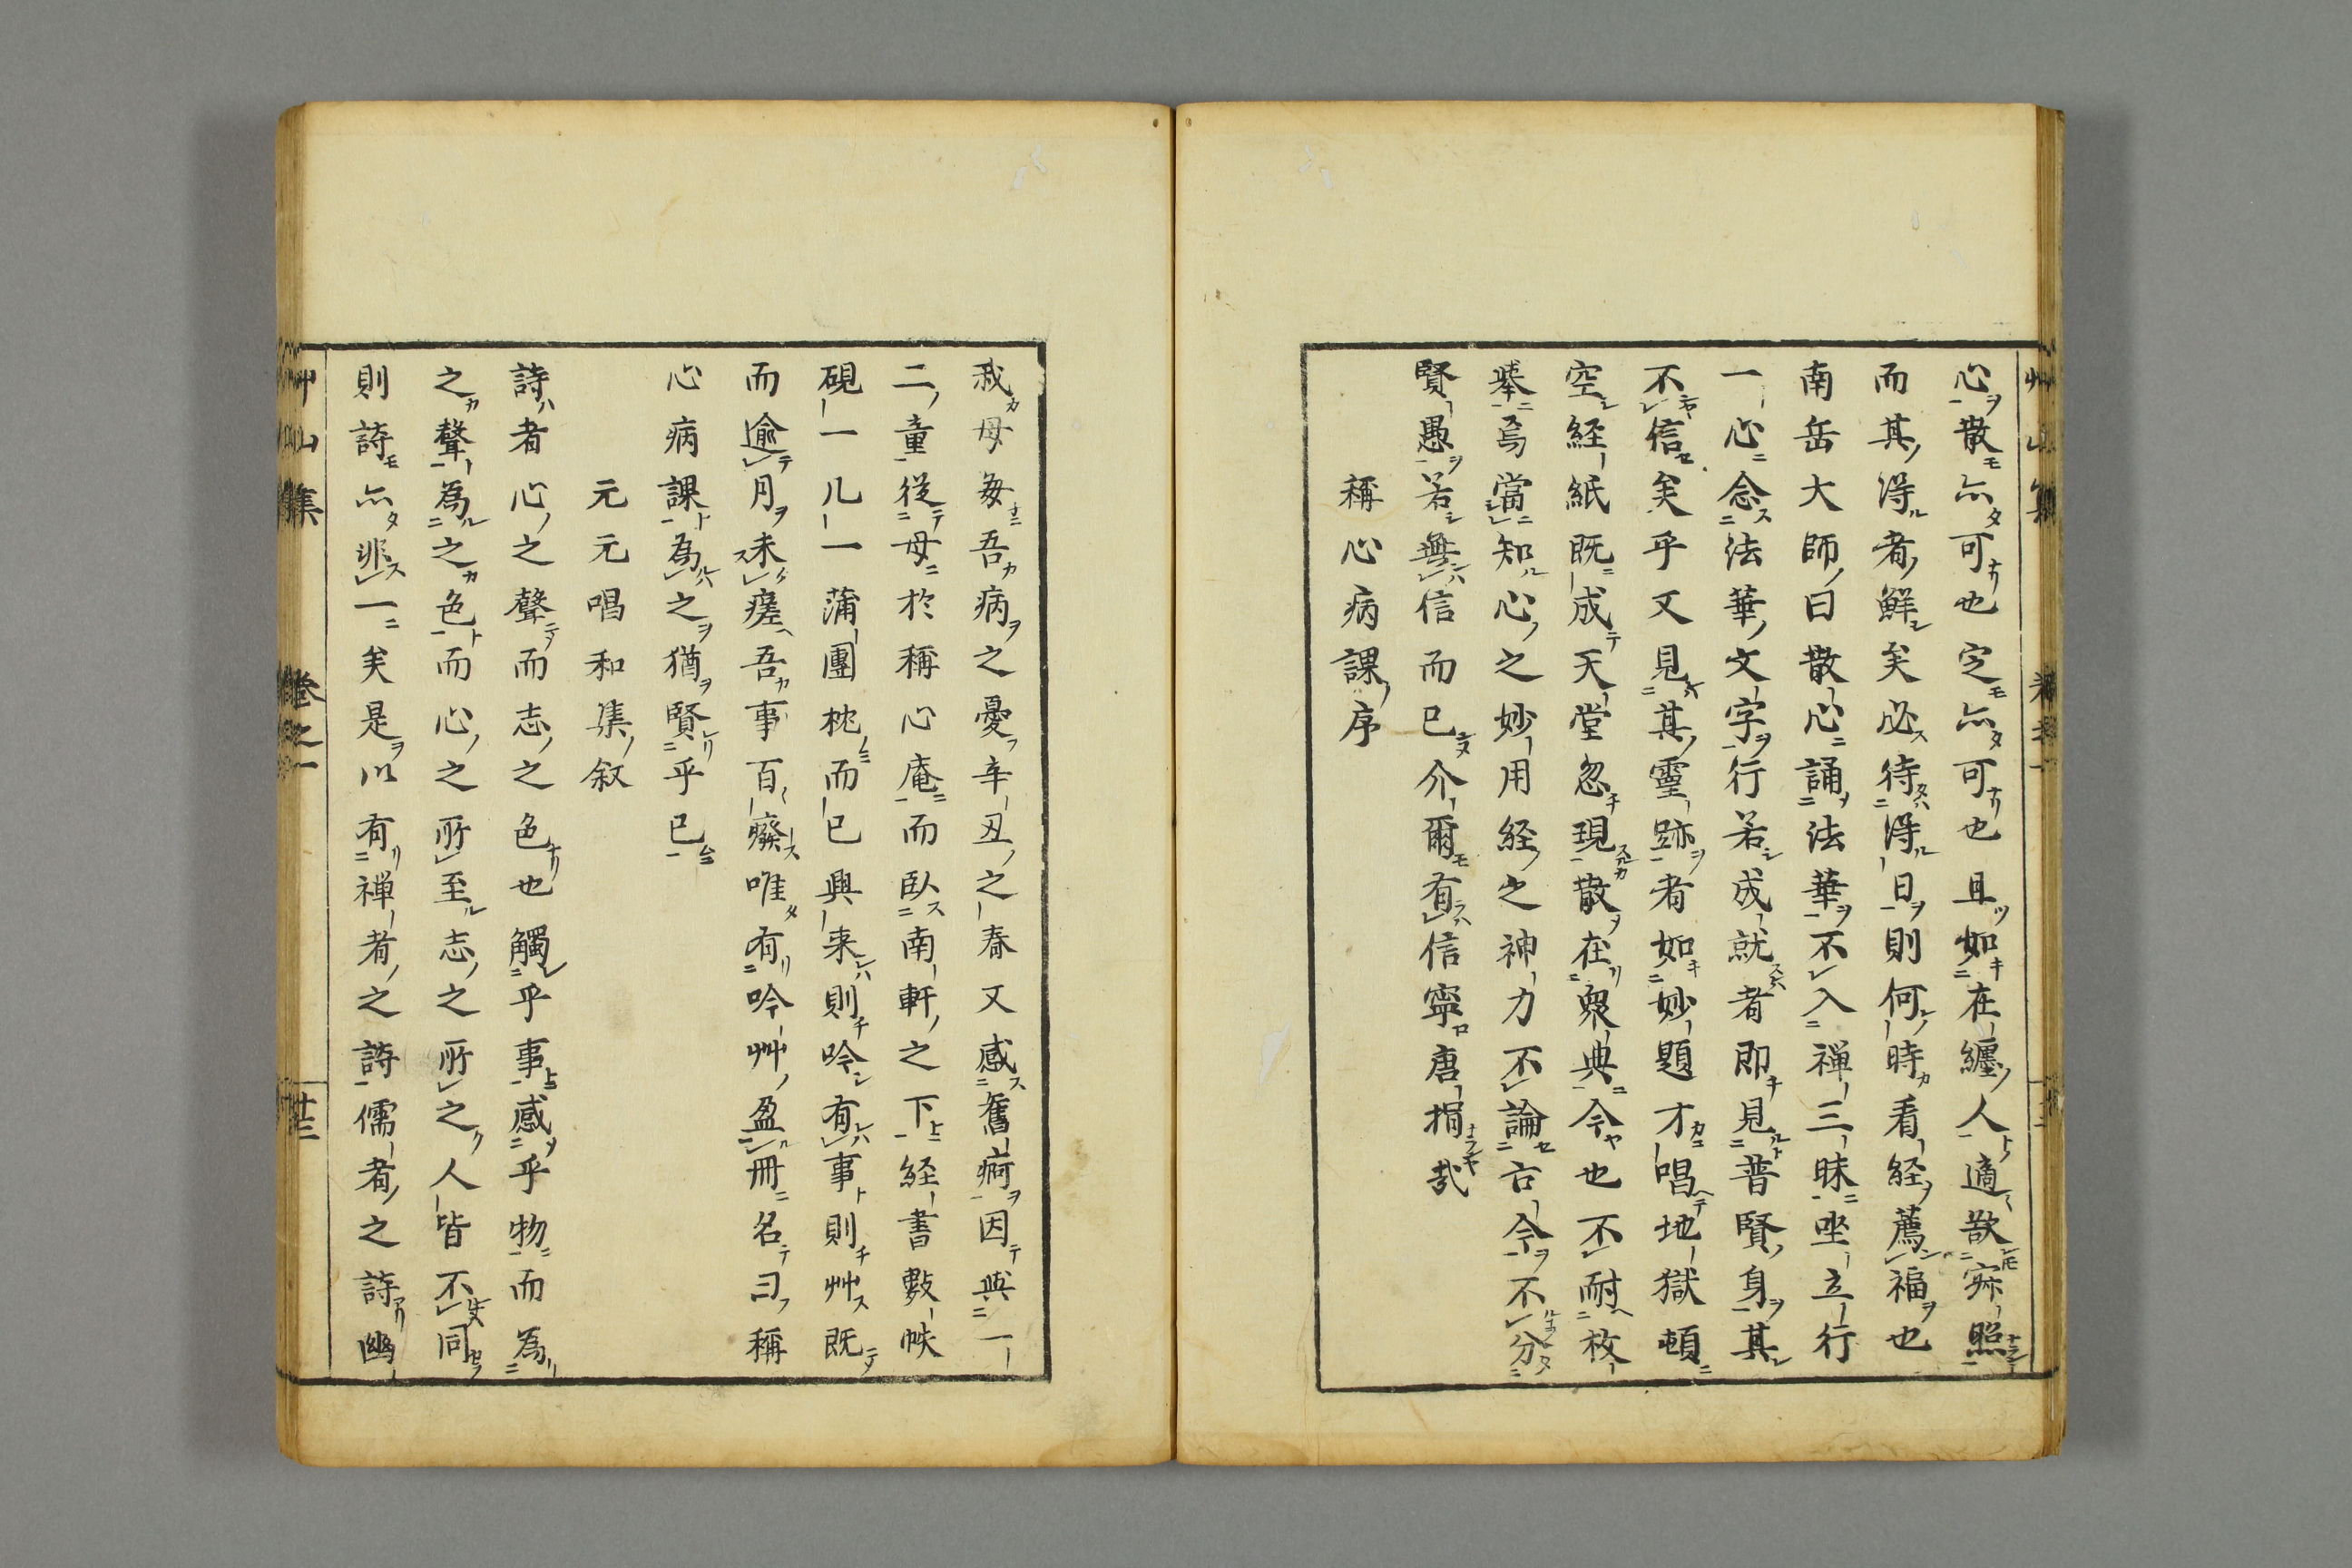 心散亦可也定亦可也且如在纏人適欲寂照
而其得者鮮矣必待得日則何時看経薦福也
南岳大師曰散心誦法華不入禅三昧坐立行
一心念法華文字行若成就者即見普賢身其
不信矣乎又見其靈跡者如妙題才唱地獄頓
空経紙既成天堂忽現散在衆典今也不耐枚
擧焉當知心之妙用経之神力不論古今不分
賢愚若無信而已介爾有信寧唐捐哉
稱心病課序
我母每吾病之憂辛丑之春又感舊痾因與一
二童従母於稱心庵而臥南軒之下経書數帙
硯一几一蒲團枕而已興来則吟有事則艸既
而逾月未瘥吾事百癈唯有吟艸盈冊名曰稱
心病課為之猶賢乎已
元元唱和集叙
詩者心之聲而志之色也觸乎事感乎物而為
之聲為之色而心之所至志之所之人皆不同
則詩亦非一矣是以有禅者之詩儒者之詩幽
艸山集 卷之一 廿三